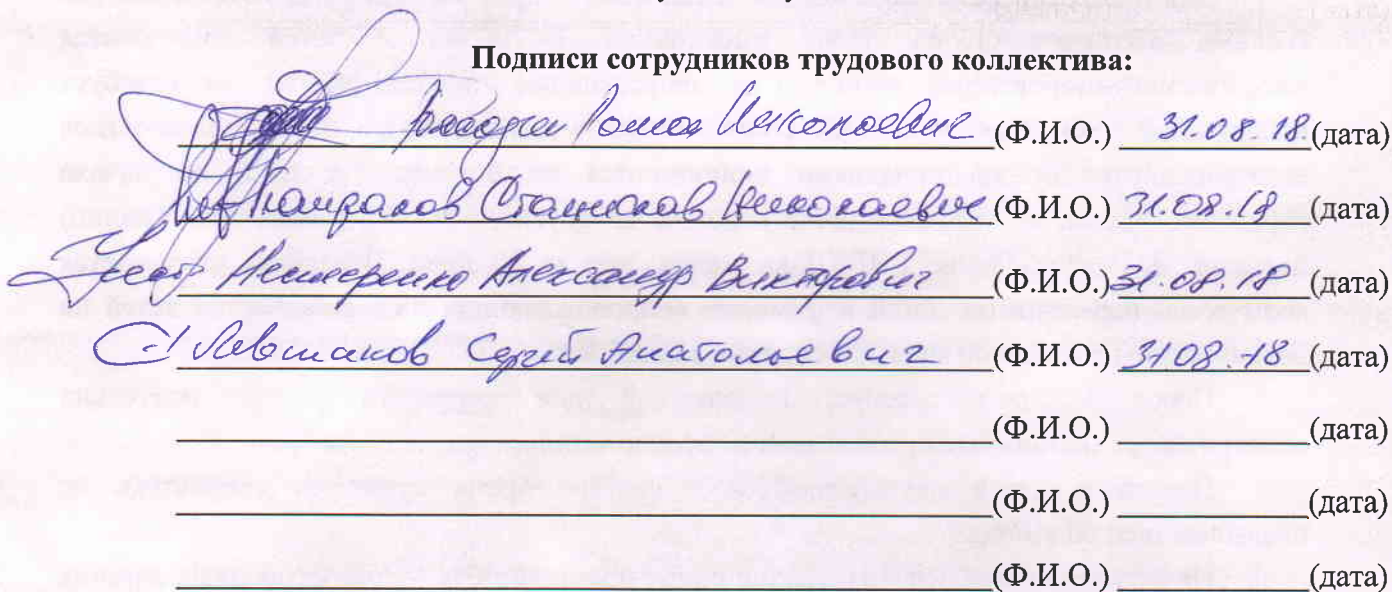 Подписи сотрудников трудового коллектива:
Роман Николаевич (Ф.И.О.) 31.08.18. (дата)
Станислав Николаевич (Ф.И.О.) 31.08.18 (дата)
Нестеренко Александр Викторович (Ф.И.О.) 31.08.18 (дата)
Левшаков Сергей Анатольевич (Ф.И.О.) 31.08.18 (дата)
(Ф.И.О.) (дата)
(Ф.И.О.) (дата)
(Ф.И.О.) (дата)